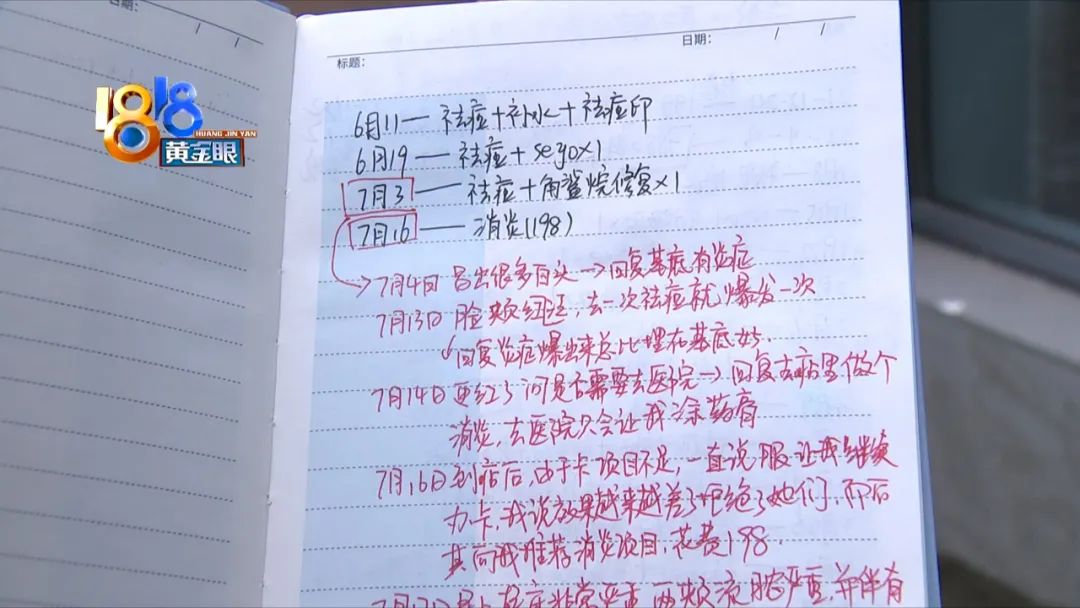 日期： / /
1818
HUANG JIN YAN
黄金眼
标题： 日期： / /
6月11— 祛痘+补水+祛痘印
6月19 — 祛痘+seyo×1
7月3 — 祛痘+角鲨烷修复×1
7月16 — 消炎(198)
7月4日 冒出很多白头→回复基底有炎症
7月13日 脸颊红肿，去一次祛痘就爆发一次
回复炎症爆出来总比埋在基底好.
7月14日 更红了问是否需要去医院→回复去店里做个
消炎，去医院只会让我涂药膏
7月16日到店后，由于卡项目不足，一直说服让我继续
办卡，我说效果越来越差了拒绝了她们，而后
其向我推荐消炎项目，花费198.
7月17日早上 严重，两颊流脓严重，并伴有